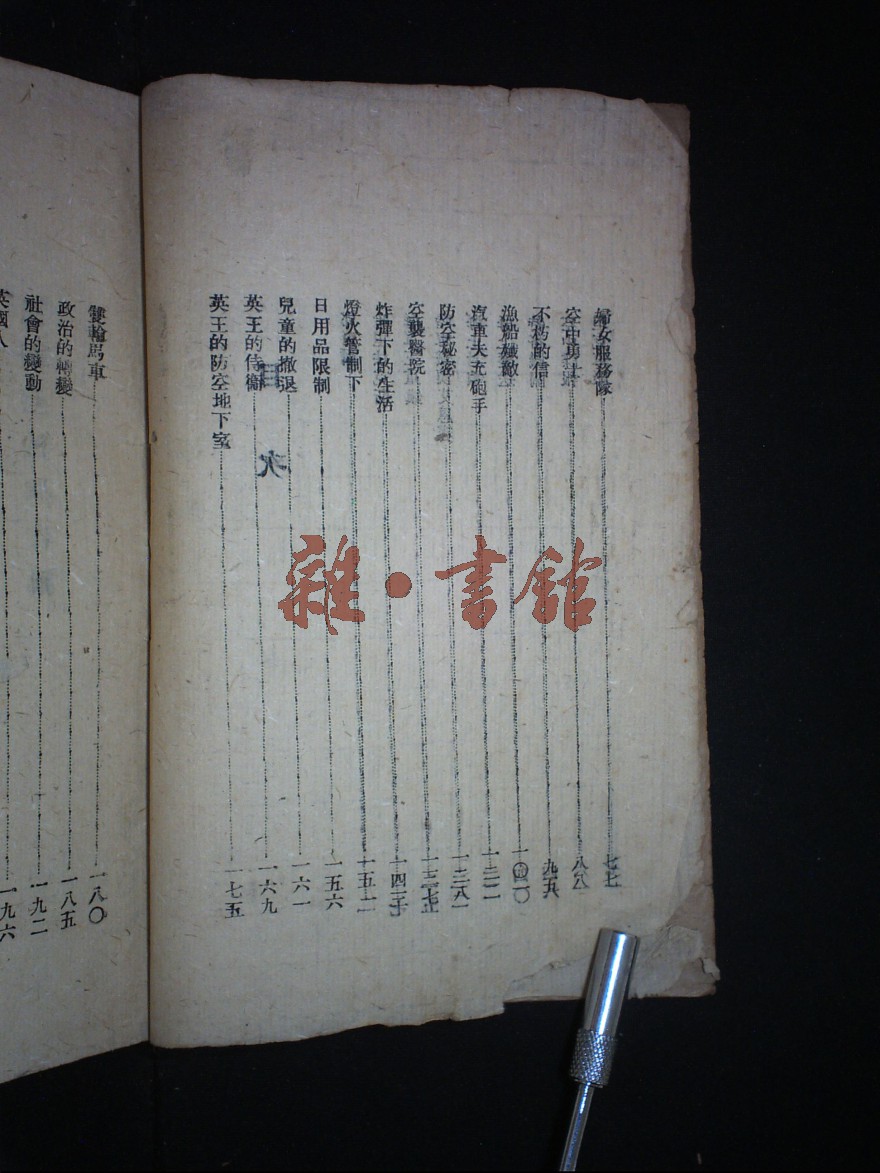 婦女服務隊……七七
空中勇士……八八
不朽的信……九五
漁船殲敵
汽車夫充砲手
防空秘密
空襲醫院
炸彈下的生活
燈火管制下
日用品限制……一五六
兒童的撤退……一六一
英王的侍衛……一六九
英王的防空地下室……一七五
雙輪馬車……一八〇
政治的轉變……一八五
社會的變動……一九二
英國人……一九六
目次
雜·書館